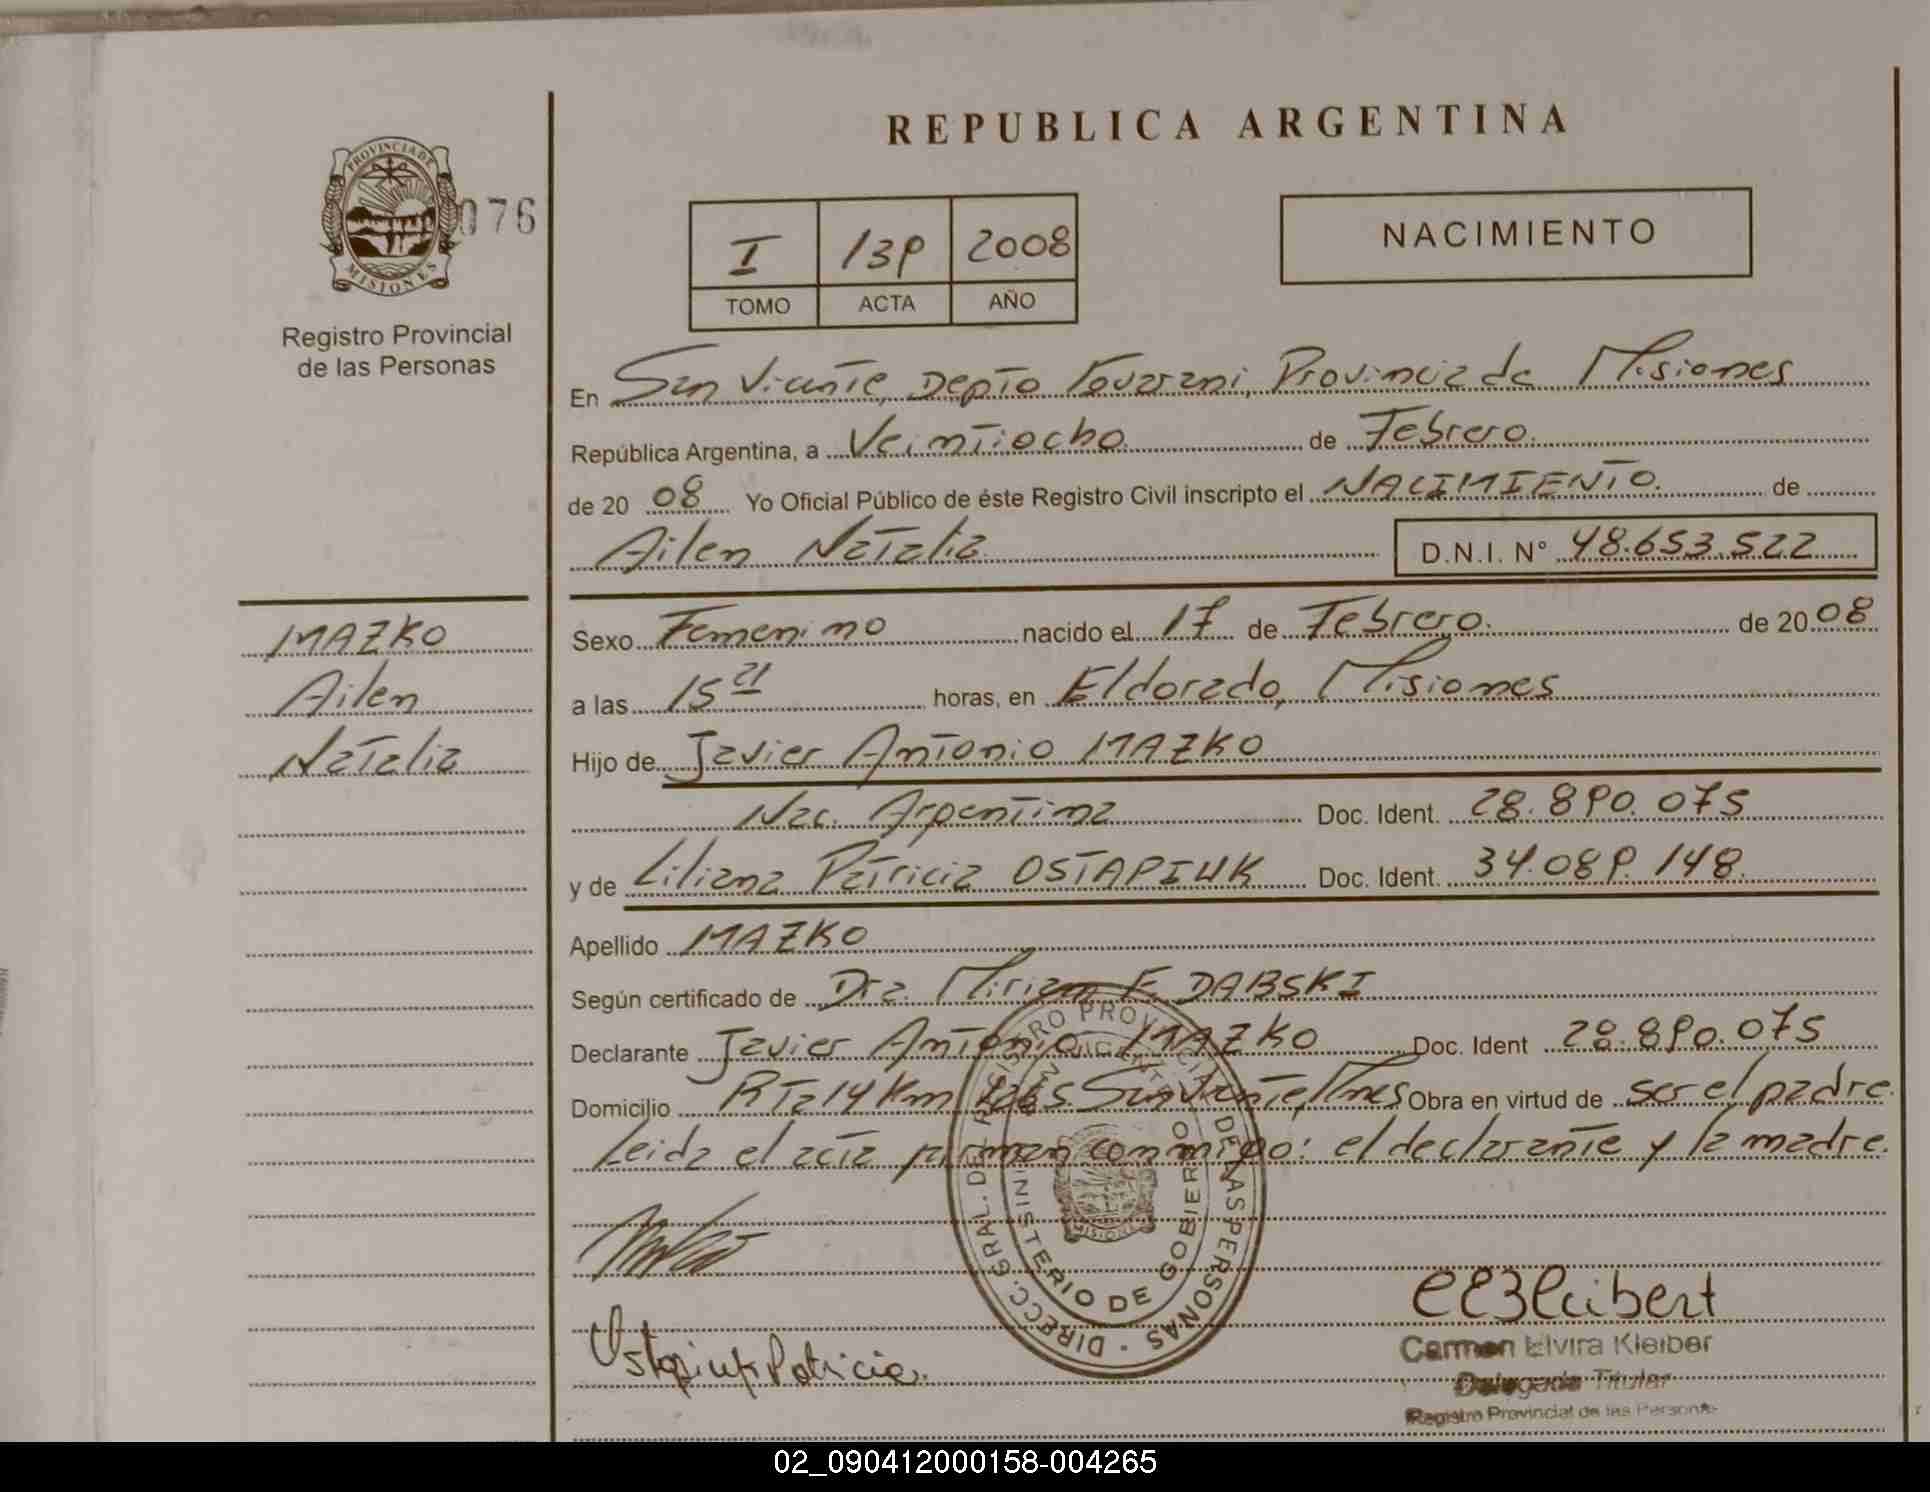 REPUBLICA ARGENTINA
PROVINCIA DE
MISIONES
076
Registro Provincial
de las Personas
I 139 2008
TOMO ACTA AÑO
NACIMIENTO
En San Vicente, Depto Guarani, Provincia de Misiones
República Argentina, a Veintiocho de Febrero.
de 2008 Yo Oficial Público de éste Registro Civil inscripto el NACIMIENTO. de
Ailen Natalia D.N.I. N° 48.653.522
MAZKO
Ailen
Natalia
Sexo Femenino nacido el 17 de Febrero. de 2008
a las 15 21 horas, en Eldorado, Misiones
Hijo de Javier Antonio MAZKO
Nac. Argentina Doc. Ident. 28.890.075
y de Liliana Patricia OSTAPIUK Doc. Ident. 34.089.148.
Apellido MAZKO
Según certificado de Dra. Miriam E. DABSKI
Declarante Javier Antonio MAZKO Doc. Ident 28.890.075
Domicilio Rta 14 Km San Vicente, Mnes Obra en virtud de ser el padre.
Leida el acta firman conmigo: el declarante y la madre.
DIRECC. GRAL. DEL REGISTRO PROVINCIAL DE LAS PERSONAS
MINISTERIO DE GOBIERNO
SAN VICENTE
MISIONES
Ostapiuk Patricia.
Carmen Elvira Kleiber
Delegada Titular
Registro Provincial de las Personas
02_090412000158-004265